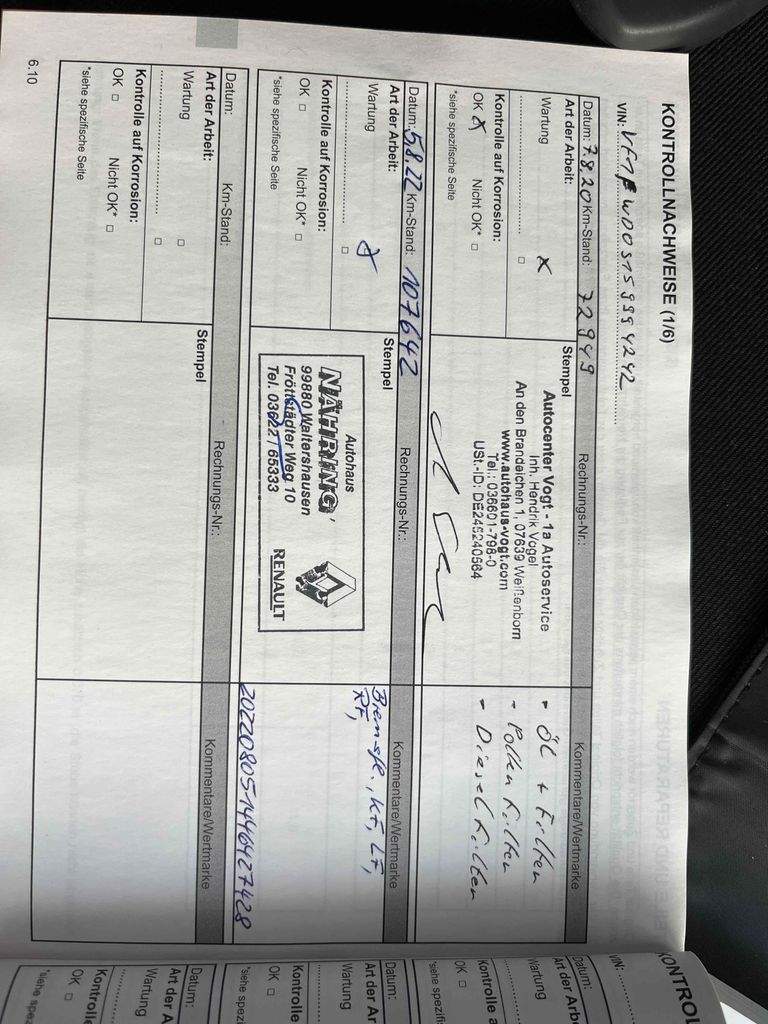 KONTROLLNACHWEISE (1/6)
VIN: VF1EWD0S159994242
Datum: 7.8.20 Km-Stand: 72949 Rechnungs-Nr.: Kommentare/Wertmarke
Art der Arbeit: Stempel
Wartung X
□
Kontrolle auf Korrosion:
OK X Nicht OK* □
*siehe spezifische Seite
Autocenter Vogt - 1a Autoservice
Inh. Hendrik Vogel
An den Brandeichen 1, 07639 Weißenborn
www.autohaus-vogt.com
Tel.: 036601-798-0
USt.-ID: DE249240564
- Öl + Filter
- Pollenfilter
- Dieselfilter
Datum: 5.8.22 Km-Stand: 107642 Rechnungs-Nr.: Kommentare/Wertmarke
Art der Arbeit: Stempel
Wartung X
□
Kontrolle auf Korrosion:
OK □ Nicht OK* □
*siehe spezifische Seite
Autohaus
NÄHRING
99880 Waltershausen
Fröttstädter Weg 10
Tel. 03622 / 65333
RENAULT
Bremsfl., KF, LF,
RF,
202208051446427428
Datum: Km-Stand: Rechnungs-Nr.: Kommentare/Wertmarke
Art der Arbeit: Stempel
Wartung □
□
Kontrolle auf Korrosion:
OK □ Nicht OK* □
*siehe spezifische Seite
6.10
KONTROL
VIN:
Datum:
Art der Arb
Wartung
Kontrolle a
OK □
*siehe spezifi
Datum:
Art der Ar
Wartung
Kontrolle
OK □
*siehe spe
Datum:
Art der A
Wartung
Kontrolle
OK □
*siehe spe